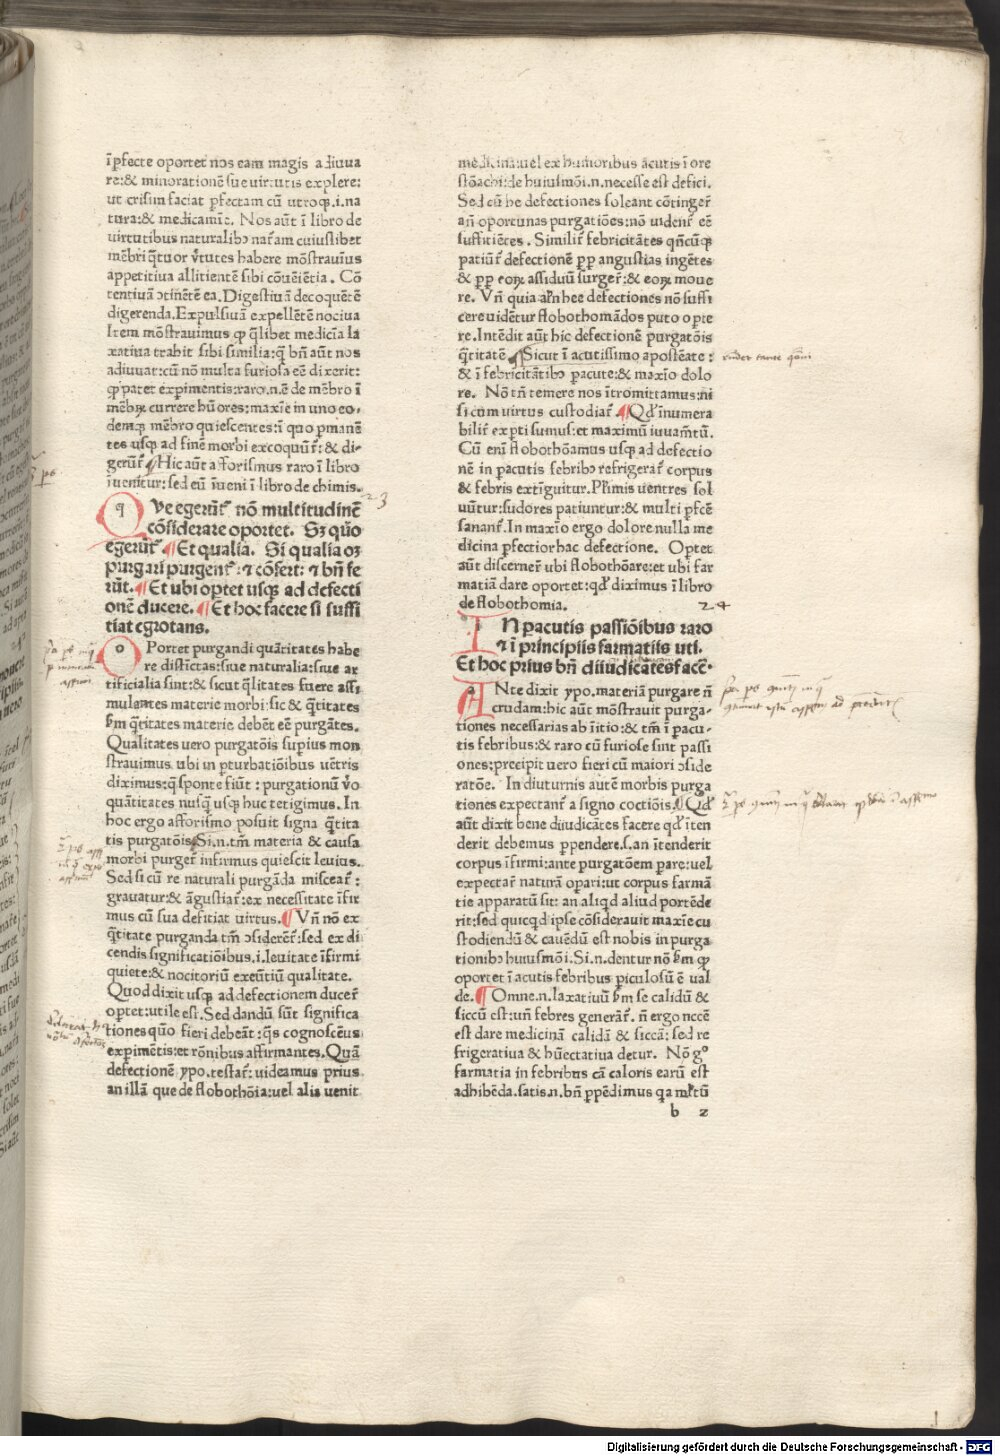 īꝑfecte oportet nos eam magis adiuua
re:& minorationē sue uirtutis explere:
ut crisim faciat ꝑfectam cū utroqꝫ.i.na
tura:& medicamīe. Nos aūt ī libro de
uirtutibus naturalibꝫ nar̃am cuiuslibet
mēbri q̄tuor v̄tutes habere mōstrauīus
appetitiua allitientē sibi cōueīētia. Cō
tentiuā ↄtinētē ea. Digestiuā decoquētē
digerenda. Expulsiuā expellētē nociua
Item mōstrauimus ꝙ q̄libet mediciīa la
xatina trahit sibi similia:q̄ bñ aūt nos
adiuuat:cū nō multa furiosa eē dixerit:
ꝙ patet exꝑimentis:raro.n.ē de mēbro ī
mēbꝝ currere hūores:maxīe in uno eo-
demqꝫ mēbro quiescentes:ī quo ꝑmanē
tes usqꝫ ad finē morbi excoquūt̃:& di-
gerūt̃. Hic aūt afforismus raro ī libro
īuenitur:sed eū īueni ī libro de chimis.
23
Que egerūt̃ nō multitudinē
cōsiderare oportet. Sꝫ quō
egerūt̃. Et qualia. Si qualia oꝫ
purgari purgent̃:⁊ cōfert:⁊ bñ fe
rūt. Et ubi optet usqꝫ ad defecti
onē ducere. Et hoc facere si suffi
tiat egrotans.
OPortet purgandi quātitates habe
re distīctas:siue naturalia:siue ar
tificialia sint:& sicut q̄litates fuere assi
mulantes materie morbi:sic & q̄titates
ẜm q̄titates materie debēt eē purgātes.
Qualitates uero purgatōis supius mon
strauimus ubi in ꝑturbatiōibus uētris
diximus:q̄ sponte fiūt: purgationū v̄o
quātitates nusq̄ usqꝫ huc tetigimus. In
hoc ergo afforismo posuit signa q̄tita
tis purgatōis Si.n.tm̄ materia & causa
morbi purget̃ infirmus quiescit leuius.
Sed si cū re naturali purgāda misceat̃:
grauatur:& āgustiat̃:ex necessitate īfir
mus cū sua defitiat uirtus. Vñ nō ex
q̄titate purganda tm̄ ↄsideret̃:sed ex di
cendis significatiōibus.i.leuitate īfirmi
quiete:& nocitoriū exeūtiū qualitate.
Quod dixit usqꝫ ad defectionem ducer̃
optet:utile est. Sed dandū sūt significa
tiones quō fieri debeāt:q̄s cognoscēus
exꝑimētis:et rōnibus affirmantes. Quā
defectionē ypo.testat̃:uideamus prius
an illā que de flobothōia:uel alia uenit
medicina:uel ex humoribus acutis ī ore
stōachi:de huiusmōi.n.necesse est defici.
Sed cū he defectiones soleant cōtinger̃
añ oportunas purgatiōes:nō uident̃ eē
suffitiētes. Similir̃ febricitātes qñcūqꝫ
patiūt̃ defectionē ꝓꝑ angustias ingētes
& ꝓꝑ eoꝝ assiduū surger̃:& eoꝝ moue
re. Vñ quia añ hee defectiones nō suffi
cere uidētur flobothomādos puto opte
re. Intēdit aūt hic defectionē purgatōis
q̄titatē. Sicut ī acutissimo apostēate:
& ī febricitātibꝫ ꝑacute:& maxīo dolo
re. Nō tñ temere nos ītromittamus:ni
si cum uirtus custodiat̃. Qd̕ īnumera
bilir̃ exꝑti sumus:et maximū iuuam̄tū.
Cū enī flobothōamus usqꝫ ad defectio
nē in ꝑacutis febribꝫ refrigerat̃ corpus
& febris extīguitur. Plr̃imis uentres sol
uūtur:sudores patiuntur:& multi ꝑfcē
sanant̃. In maxīo ergo dolore nulla me
dicina ꝑfectior hac defectione. Optet
aūt discerner̃ ubi flobothōare:et ubi far
matiā dare oportet:qd̕ diximus ī libro
de flobothomia.
24
IN ꝑacutis passiōibus raro
⁊ ī principiis farmatiis uti.
Et hoc prius bñ diiudicātes facē.
ANte dixit ypo.materiā purgare ñ
crudam:hic aūt mōstrauit purga-
tiones necessarias ab ītio:& tm̄ ī ꝑacu-
tis febribus:& raro cū furiose sint passi
ones:precipit uero fieri cū maiori ↄside
ratōe. In diuturnis autē morbis purga
tiones expectant̃ a signo coctiōis. Qd̕
aūt dixit bene diiudicātes facere qd̕ īten
derit debemus ꝑpendere.s.an ītenderit
corpus īfirmi:ante purgatōem pare:uel
expectar̃ naturā opari:ut corpus farmā
tie apparatū sit: an aliqd aliud portēde
rit:sed quicqd ipse cōsiderauit maxīe cu
stodiendū & cauēdū est nobis in purga
tionibꝫ huiusmōi. Si.n.dentur nō ẜm ꝙ
oportet ī acutis febribus piculosū ē ual
de. Omne.n.laxatiuū ẜm se calidū &
siccū est:uñ febres generat̃. ñ ergo nccē
est dare medicinā calidā & siccā:sed re
frigeratiua & hūectatiua detur. Nō gͦ
farmatia in febribus cā caloris earū est
adhibēda.satis.n.bñ ꝑpēdimus qa mltū
b 2
Digitalisierung gefördert durch die Deutsche Forschungsgemeinschaft - DFG